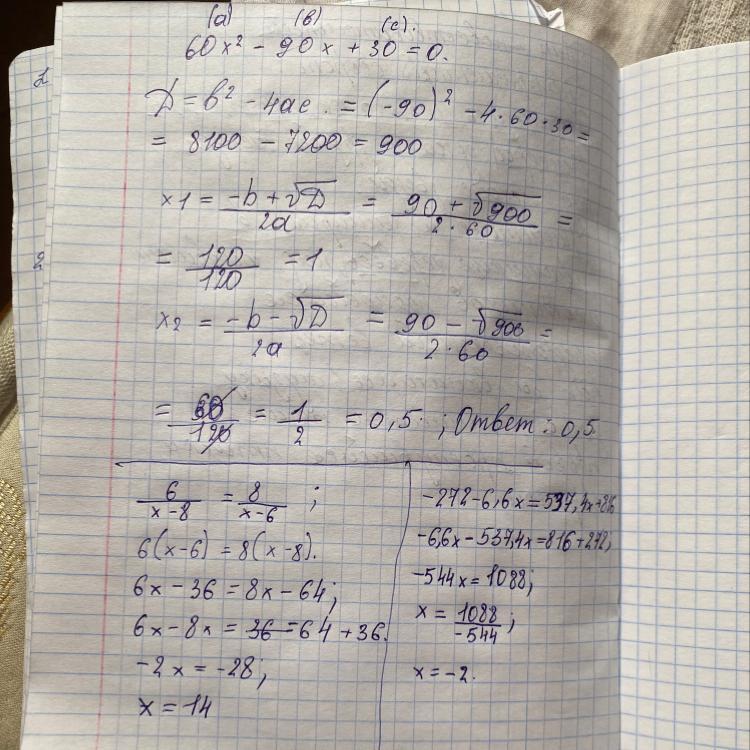 (a) (в) (c).
60x² - 90x + 30 = 0.
D = b² - 4ac = (-90)² - 4·60·30 =
= 8100 - 7200 = 900
x1 = (-b + √D)/(2a) = (90 + √900)/(2·60) =
= 120/120 = 1
x2 = (-b - √D)/(2a) = (90 - √900)/(2·60) =
= 60/120 = 1/2 = 0,5 ; Ответ: 0,5
6/(x-8) = 8/(x-6) ;
6(x-6) = 8(x-8).
6x - 36 = 8x - 64;
6x - 8x = 36 = 64 + 36.
-2x = -28;
x = 14
-272-6,6x=537,4x+816
-6,6x-537,4x=816+272;
-544x = 1088;
x = 1088/-544 ;
x = -2.
1
2